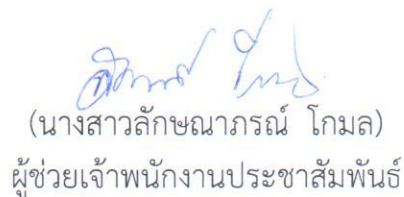 (นางสาวลักษณาภรณ์ โกมล)
ผู้ช่วยเจ้าพนักงานประชาสัมพันธ์